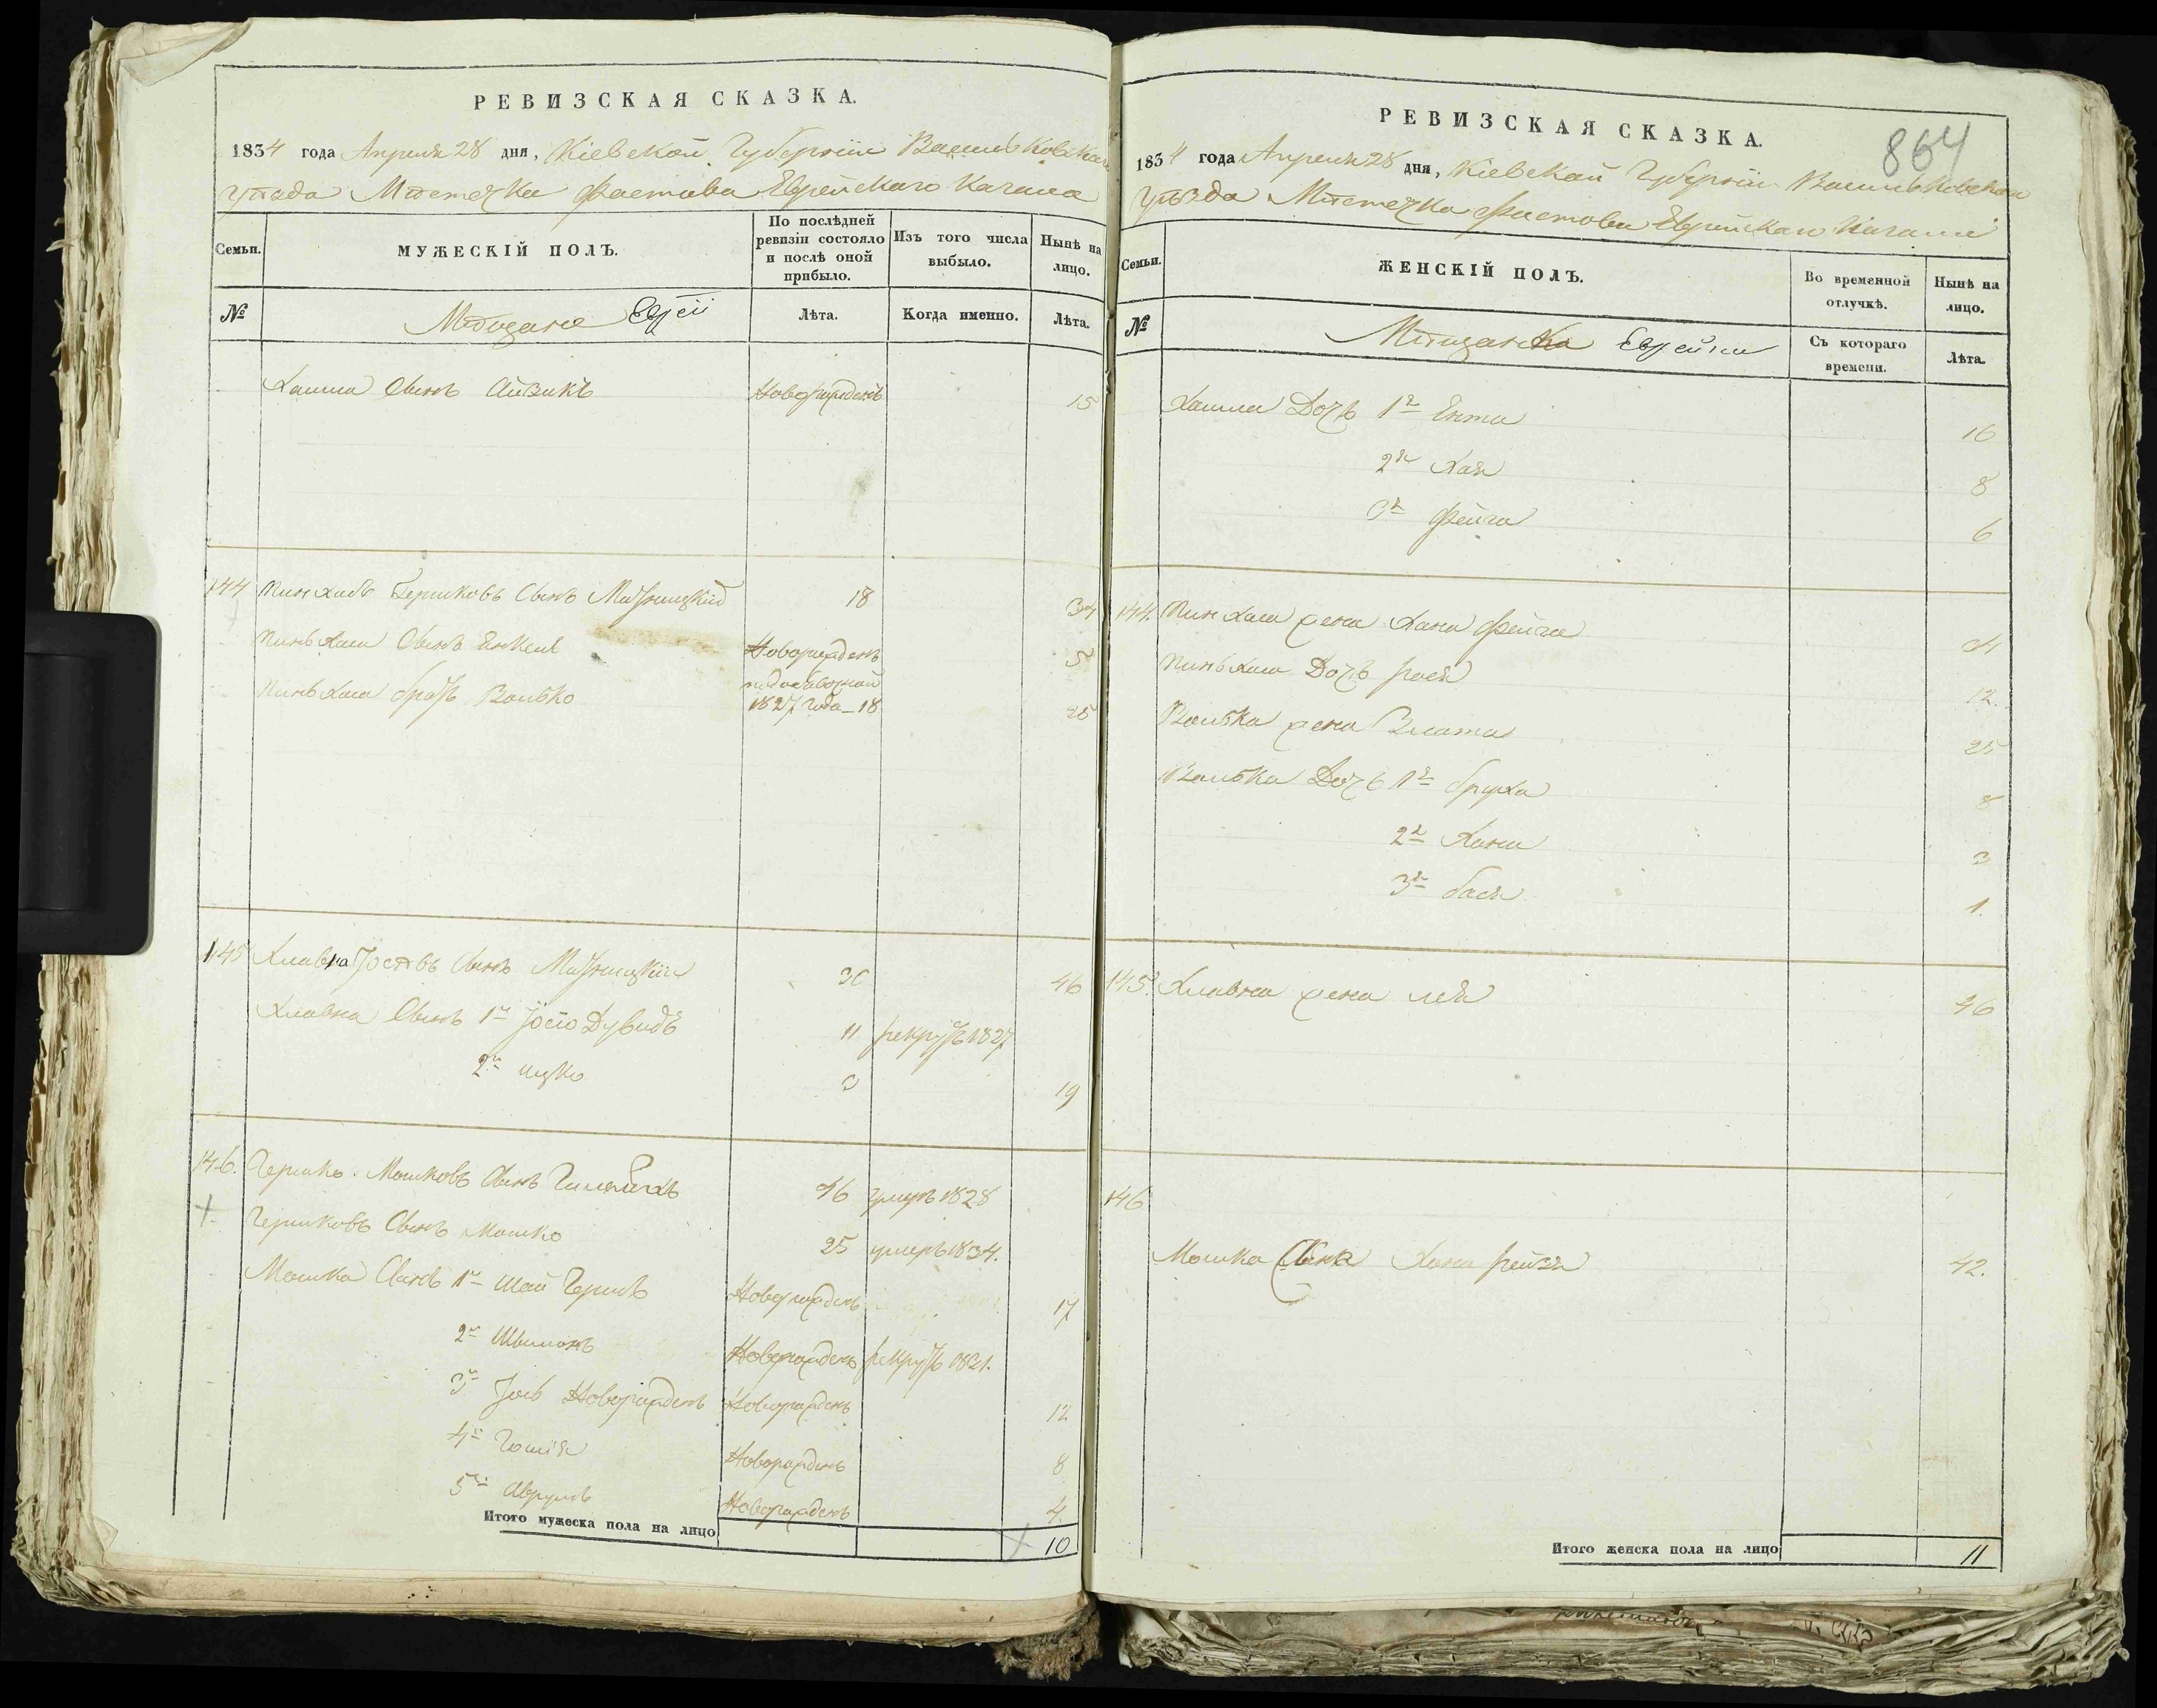 РЕВИЗСКАЯ СКАЗКА.
1834 года Апреля 28 дня, Кіевской Губерніи Васильковскаго
уѣзда Мѣстечка Фастова Еврейскаго Кагала
Семьи.
МУЖЕСКІЙ ПОЛЪ.
По послѣдней ревизіи состояло и послѣ оной прибыло.
Изъ того числа выбыло.
Нынѣ на лицо.
№
Мѣщане Евреи
Лѣта.
Когда именно.
Лѣта.
Хаима Сынъ Айзикъ Новорожденъ 15
144 Пинхасъ Гершковъ Сынъ 18 34
Пиньхаса Сынъ Янкель Новорожденъ 5
Пиньхаса братъ Волько 1827 года 18 25
145 Хлавна Сынъ 30 46
Хлавна Сынъ 1й Іосіо Дувидъ 11 рекрутъ 1827
2й Ицко 3 19
146. Гершко Мошковъ Сынъ 46 умеръ 1828
Гершковъ Сынъ Мошко 25 умеръ 1834.
Мошка Сынъ 1й Шай Гершъ Новорожденъ 17
2й Шимонъ Новорожденъ рекрутъ 1831.
3й Новорожденъ Новорожденъ 12
4й Новорожденъ 8
5й Аврумъ Новорожденъ 4.
Итого мужеска пола на лицо 10
864
РЕВИЗСКАЯ СКАЗКА.
1834 года Апреля 28 дня, Кіевской Губерніи Васильковскаго
уѣзда Мѣстечка Фастова Еврейскаго Кагала
Семьи.
ЖЕНСКІЙ ПОЛЪ.
Во временной отлучкѣ.
Нынѣ на лицо.
№
Мѣщанки Еврейки
Съ котораго времени.
Лѣта.
Хаима Дочь 1я Ента 16
2я Хая 8
3я Фейга 6
144. Пинхаса жена Хана Фейга
Пиньхаса Дочь Рося 12.
Волька жена Злата 25
Волька Дочь 1я Бруха 8
2я Хана 3
3я Бася 1.
145. Хлавна жена Лея 46
146
Мошка жена Хана Рейзя 42.
Итого женска пола на лицо 11